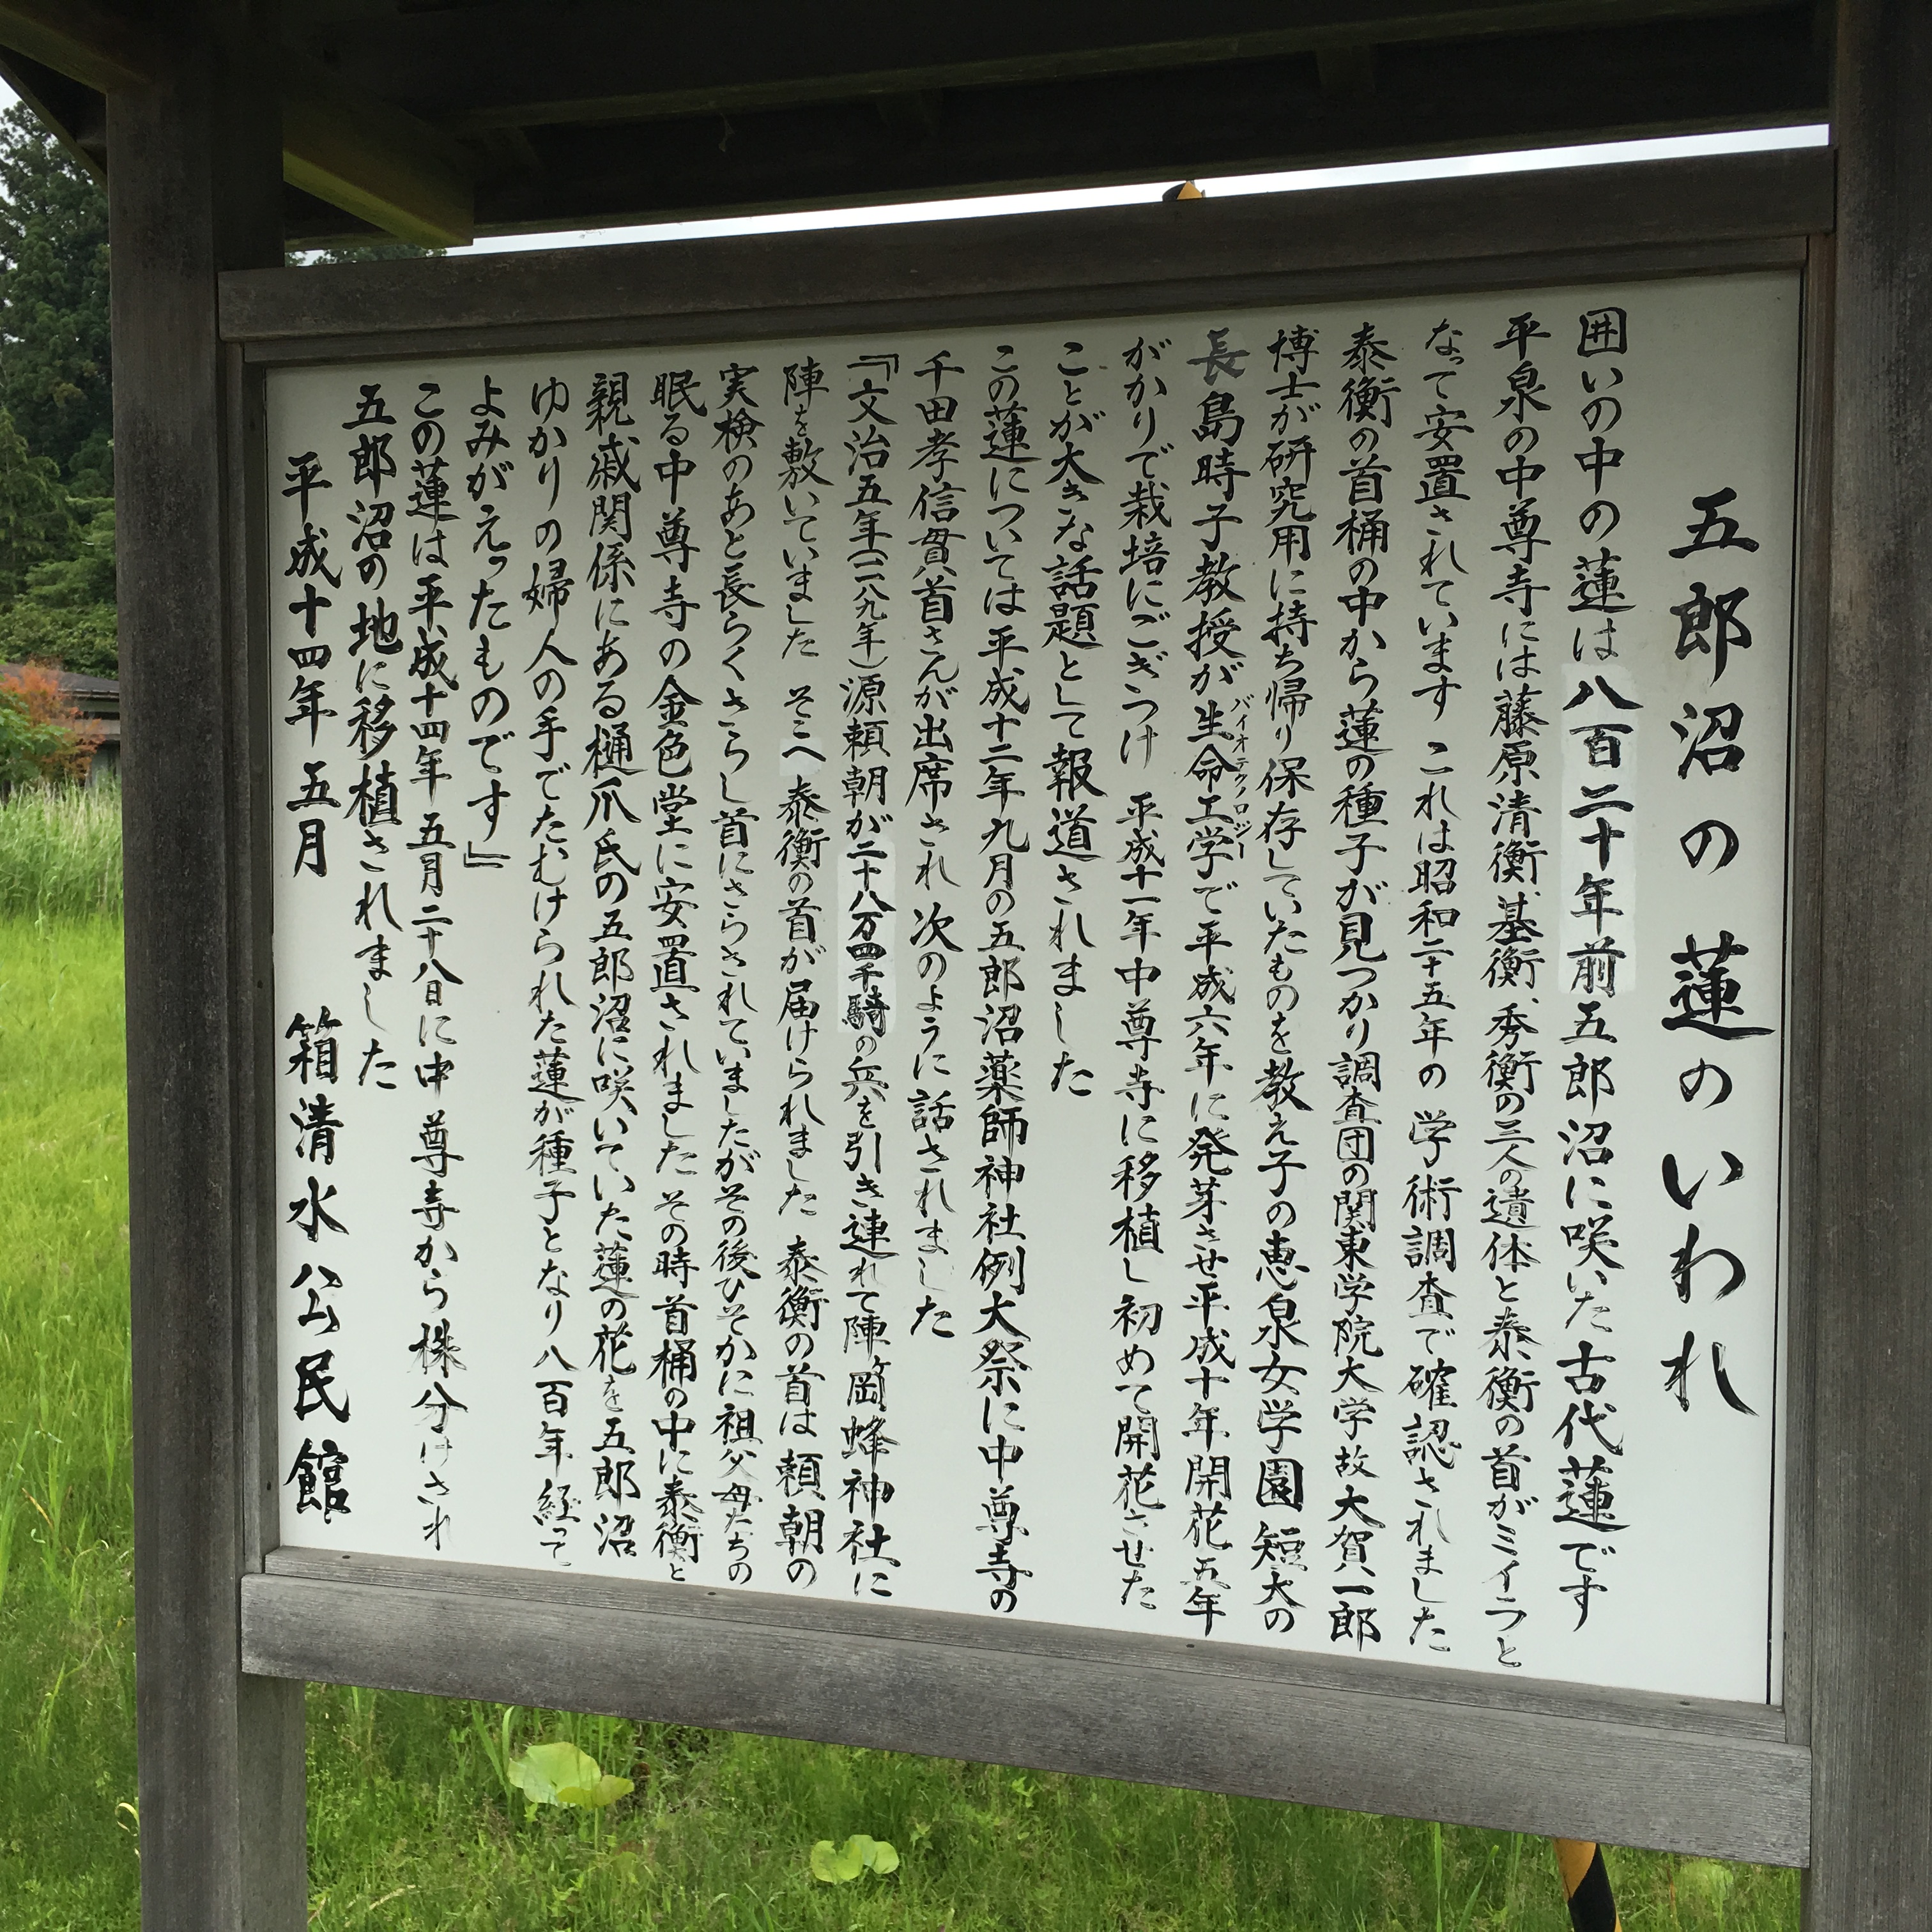 五郎沼の蓮のいわれ
囲いの中の蓮は八百二十年前五郎沼に咲いた古代蓮です
平泉の中尊寺には藤原清衡、基衡、秀衡の三人の遺体と泰衡の首がミイラと
なって安置されています これは昭和二十五年の学術調査で確認されました
泰衡の首桶の中から蓮の種子が見つかり調査団の関東学院大学故大賀一郎
博士が研究用に持ち帰り保存していたものを教え子の恵泉女学園短大の
長島時子教授が生命工学で平成六年に発芽させ平成十年開花五年
バイオテクノロジー
がかりで栽培にこぎつけ 平成十一年中尊寺に移植し初めて開花させた
ことが大きな話題として報道されました
この蓮については平成十二年九月の五郎沼薬師神社例大祭に中尊寺の
千田孝信貫首さんが出席され次のように話されました
『文治五年(一一八九年)源頼朝が二十八万四千騎の兵を引き連れて陣岡蜂神社に
陣を敷いていました そこへ泰衡の首が届けられました 泰衡の首は頼朝の
実検のあと長らくさらし首にさらされていましたがその後ひそかに祖父母たちの
眠る中尊寺の金色堂に安置されました その時首桶の中に泰衡と
親戚関係にある樋爪氏の五郎沼に咲いていた蓮の花を五郎沼
ゆかりの婦人の手でたむけられた蓮が種子となり八百年経って
よみがえったものです』
この蓮は平成十四年五月二十八日に中尊寺から株分けされ
五郎沼の地に移植されました
平成十四年五月 箱清水公民館